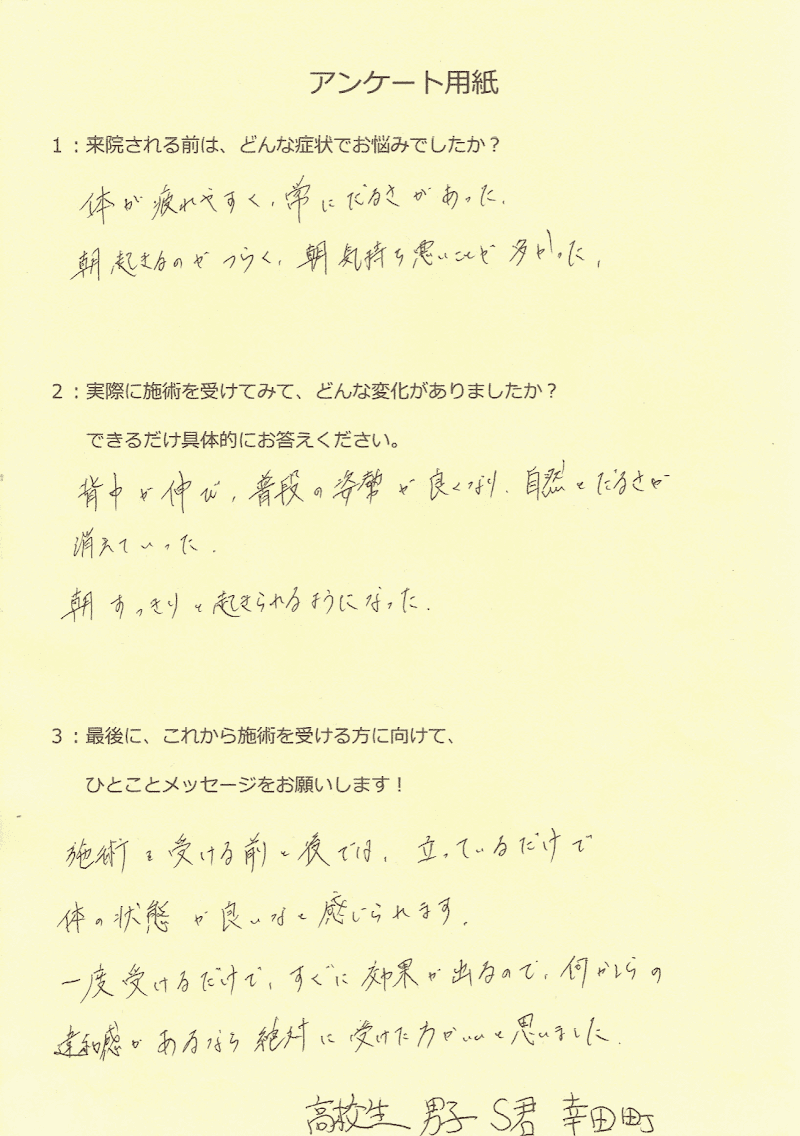 アンケート用紙
1：来院される前は、どんな症状でお悩みでしたか？
体が疲れやすく、常にだるさがあった。
朝起きるのがつらく、朝気持ち悪いことが多かった。
2：実際に施術を受けてみて、どんな変化がありましたか？
できるだけ具体的にお答えください。
背中が伸び、普段の姿勢が良くなり、自然とだるさが
消えていった。
朝すっきりと起きられるようになった。
3：最後に、これから施術を受ける方に向けて、
ひとことメッセージをお願いします！
施術を受ける前と後では、立っているだけで
体の状態が良いなと感じられます。
一度受けるだけで、すぐに効果が出るので、何かしらの
違和感があるなら絶対に受けた方がいいと思いました。
高校生 男子 S君 幸田町